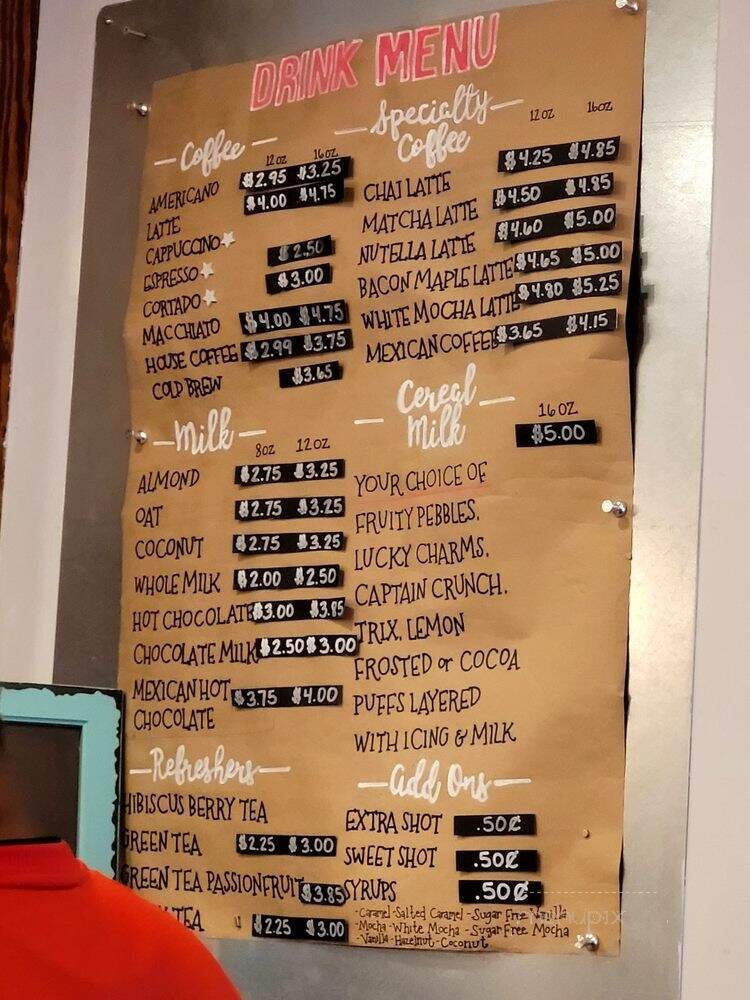 DRINK MENU
Coffee
12 OZ 16 OZ
AMERICANO $2.95 $3.25
LATTE $4.00 $4.75
CAPPUCCINO
ESPRESSO $2.50
CORTADO $3.00
MACCHIATO $4.00 $4.75
HOUSE COFFEE $2.99 $3.75
COLD BREW $3.65
Milk
8OZ 12OZ
ALMOND $2.75 $3.25
OAT $2.75 $3.25
COCONUT $2.75 $3.25
WHOLE MILK $2.00 $2.50
HOT CHOCOLATE $3.00 $3.85
CHOCOLATE MILK $2.50 $3.00
MEXICAN HOT $3.75 $4.00
CHOCOLATE
Refreshers
HIBISCUS BERRY TEA
GREEN TEA $2.25 $3.00
GREEN TEA PASSIONFRUIT $3.85
TEA $2.25 $3.00
Specialty
Coffee
12OZ 16OZ
CHAI LATTE $4.25 $4.85
MATCHA LATTE $4.50 $4.85
NUTELLA LATTE $4.60 $5.00
BACON MAPLE LATTE $4.65 $5.00
WHITE MOCHA LATTE $4.80 $5.25
MEXICAN COFFEE $3.65 $4.15
Cereal
Milk
16 OZ
$5.00
YOUR CHOICE OF
FRUITY PEBBLES,
LUCKY CHARMS,
CAPTAIN CRUNCH,
TRIX, LEMON
FROSTED or COCOA
PUFFS LAYERED
WITH ICING & MILK
Add Ons
EXTRA SHOT .50¢
SWEET SHOT .50¢
SYRUPS .50¢
-Caramel -Salted Caramel -Sugar Free Vanilla
-Mocha -White Mocha -Sugar Free Mocha
-Vanilla -Hazelnut -Coconut